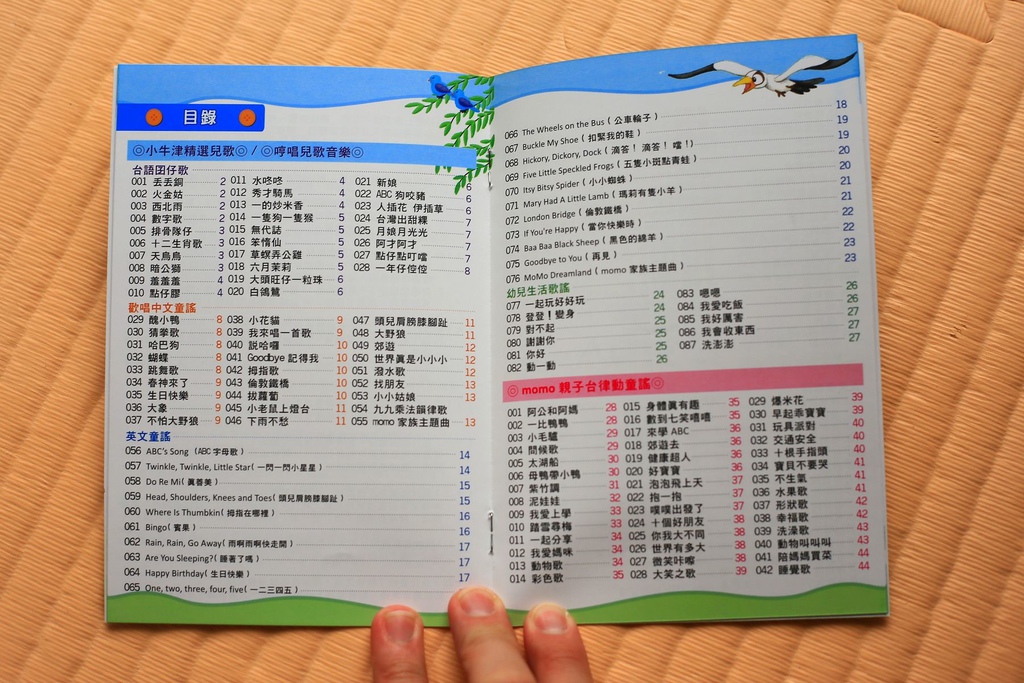 目錄
◎小牛津精選兒歌◎ / ◎哼唱兒歌音樂◎
台語囝仔歌
001 丟丟銅 2
002 火金姑 2
003 西北雨 2
004 數字歌 2
005 排骨隊仔 3
006 十二生肖歌 3
007 天烏烏 3
008 暗公獅 3
009 羞羞羞 4
010 點仔膠 4
011 水咚咚 4
012 秀才騎馬 4
013 一的炒米香 4
014 一隻狗一隻猴 5
015 無代誌 5
016 笨惰仙 5
017 草螟弄公雞 5
018 六月茉莉 5
019 大頭旺仔一粒珠 6
020 白鴿鷥 6
021 新娘 6
022 ABC 狗咬豬 6
023 人插花 伊插草 6
024 台灣出甜粿 7
025 月娘月光光 7
026 阿才阿才 7
027 點仔點叮噹 7
028 一年仔悾悾 8
歡唱中文童謠
029 醜小鴨 8
030 猜拳歌 8
031 哈巴狗 8
032 蝴蝶 8
033 跳舞歌 8
034 春神來了 9
035 生日快樂 9
036 大象 9
037 不怕大野狼 9
038 小花貓 9
039 我來唱一首歌 9
040 說哈囉 10
041 Goodbye 記得我 10
042 拇指歌 10
043 倫敦鐵橋 10
044 拔蘿蔔 10
045 小老鼠上燈台 11
046 下雨不愁 11
047 頭兒肩膀膝腳趾 11
048 大野狼 11
049 郊遊 12
050 世界真是小小小 12
051 潑水歌 12
052 找朋友 13
053 小小姑娘 13
054 九九乘法韻律歌
055 momo 家族主題曲 13
英文童謠
056 ABC's Song (ABC 字母歌) 14
057 Twinkle, Twinkle, Little Star(一閃一閃小星星) 14
058 Do Re Mi(真善美) 15
059 Head, Shoulders, Knees and Toes(頭兒肩膀膝腳趾) 15
060 Where Is Thumbkin(拇指在哪裡) 16
061 Bingo(賓果) 16
062 Rain, Rain, Go Away(雨啊雨啊快走開) 17
063 Are You Sleeping?(睡著了嗎) 17
064 Happy Birthday(生日快樂) 17
065 One, two, three, four, five(一二三四五)
066 The Wheels on the Bus(公車輪子) 18
067 Buckle My Shoe(扣緊我的鞋) 19
068 Hickory, Dickory, Dock(滴答! 滴答! 噹!) 19
069 Five Little Speckled Frogs(五隻小斑點青蛙) 20
070 Itsy Bitsy Spider(小小蜘蛛) 20
071 Mary Had A Little Lamb(瑪莉有隻小羊) 21
072 London Bridge(倫敦鐵橋) 21
073 If You're Happy(當你快樂時) 22
074 Baa Baa Black Sheep(黑色的綿羊) 22
075 Goodbye to You(再見) 23
076 MoMo Dreamland(momo 家族主題曲) 23
幼兒生活歌謠
077 一起玩好好玩 24
078 登登!變身 24
079 對不起 25
080 謝謝你 25
081 你好 25
082 動一動 26
083 嗯嗯 26
084 我愛吃飯 26
085 我好厲害 27
086 我會收東西 27
087 洗澎澎 27
◎momo 親子台律動童謠◎
001 阿公和阿媽 28
002 一比鴨鴨 28
003 小毛驢 29
004 問候歌 29
005 太湖船 30
006 母鴨帶小鴨 30
007 紫竹調 31
008 泥娃娃 32
009 我愛上學 33
010 踏雪尋梅 33
011 一起分享 34
012 我愛媽咪 34
013 動物歌 34
014 彩色歌 35
015 身體真有趣 35
016 數到七笑嘻嘻 35
017 來學 ABC 36
018 郊遊去 36
019 健康超人 36
020 好寶寶 36
021 泡泡飛上天 37
022 抱一抱 37
023 噗噗出發了 37
024 十個好朋友 38
025 你我大不同 38
026 世界有多大 38
027 微笑咔嚓 38
028 大笑之歌 39
029 爆米花 39
030 早起乖寶寶 39
031 玩具派對 40
032 交通安全 40
033 十根手指頭 40
034 寶貝不要哭 41
035 不生氣 41
036 水果歌 41
037 形狀歌 42
038 幸福歌 42
039 洗澡歌 43
040 動物叫叫叫 43
041 陪媽媽買菜 44
042 睡覺歌 44